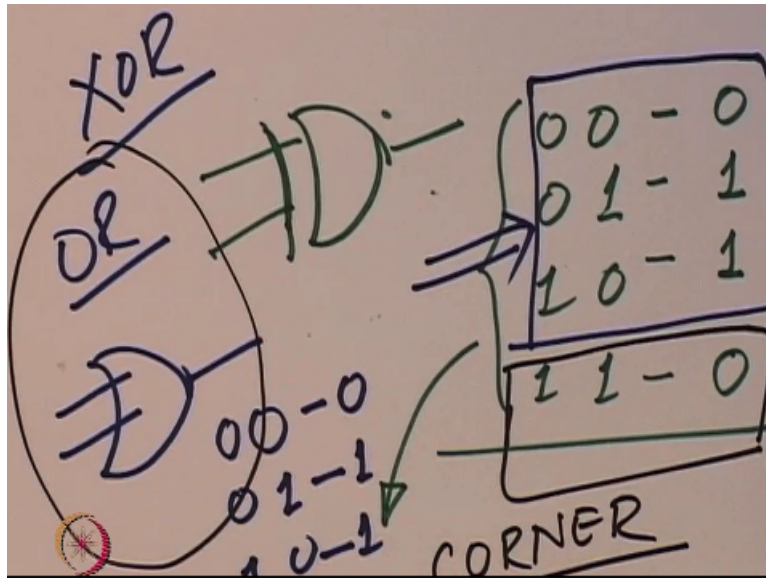 XOR
OR
00-0
01-1
10-1
00-0
01-1
10-1
11-0
CORNER